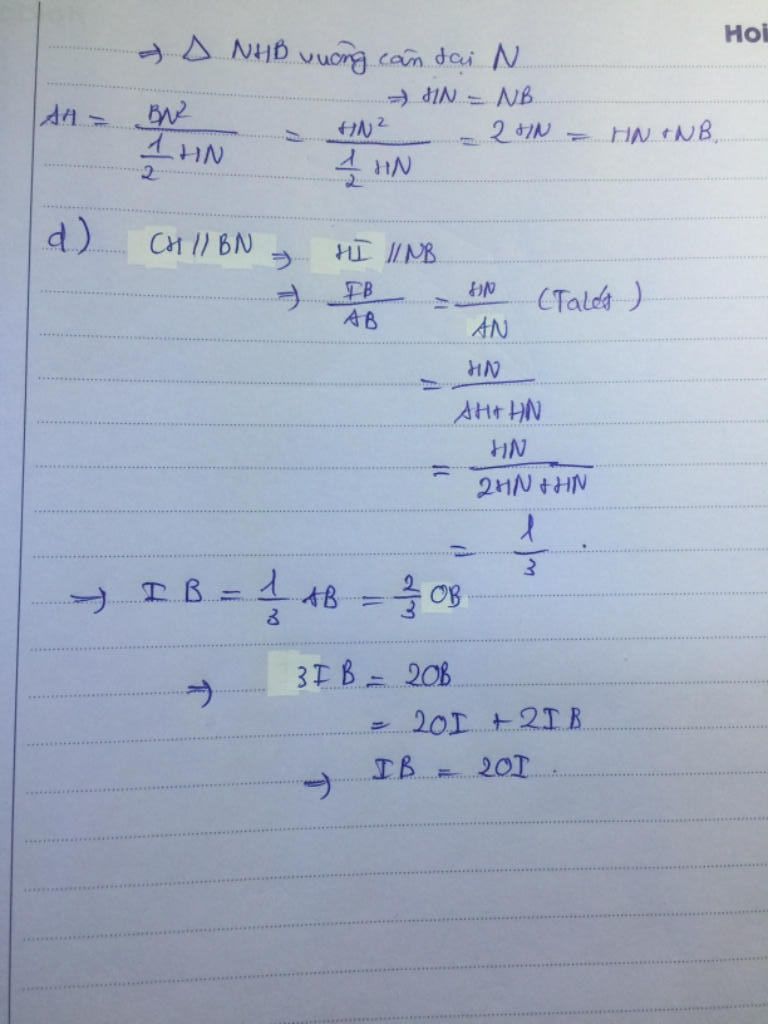 Hoi
⇒ Δ NHB vuông cân tại N
⇒ HN = NB
AH = BN² / (1/2 HN) = HN² / (1/2 HN) = 2HN = HN + NB.
d) CH // BN ⇒ HI // NB
⇒ IB/AB = HN/AN (Talét)
= HN/(AH + HN)
= HN/(2HN + HN)
= 1/3.
⇒ IB = 1/3 AB = 2/3 OB
⇒ 3IB = 2OB
= 2OI + 2IB
⇒ IB = 2OI.